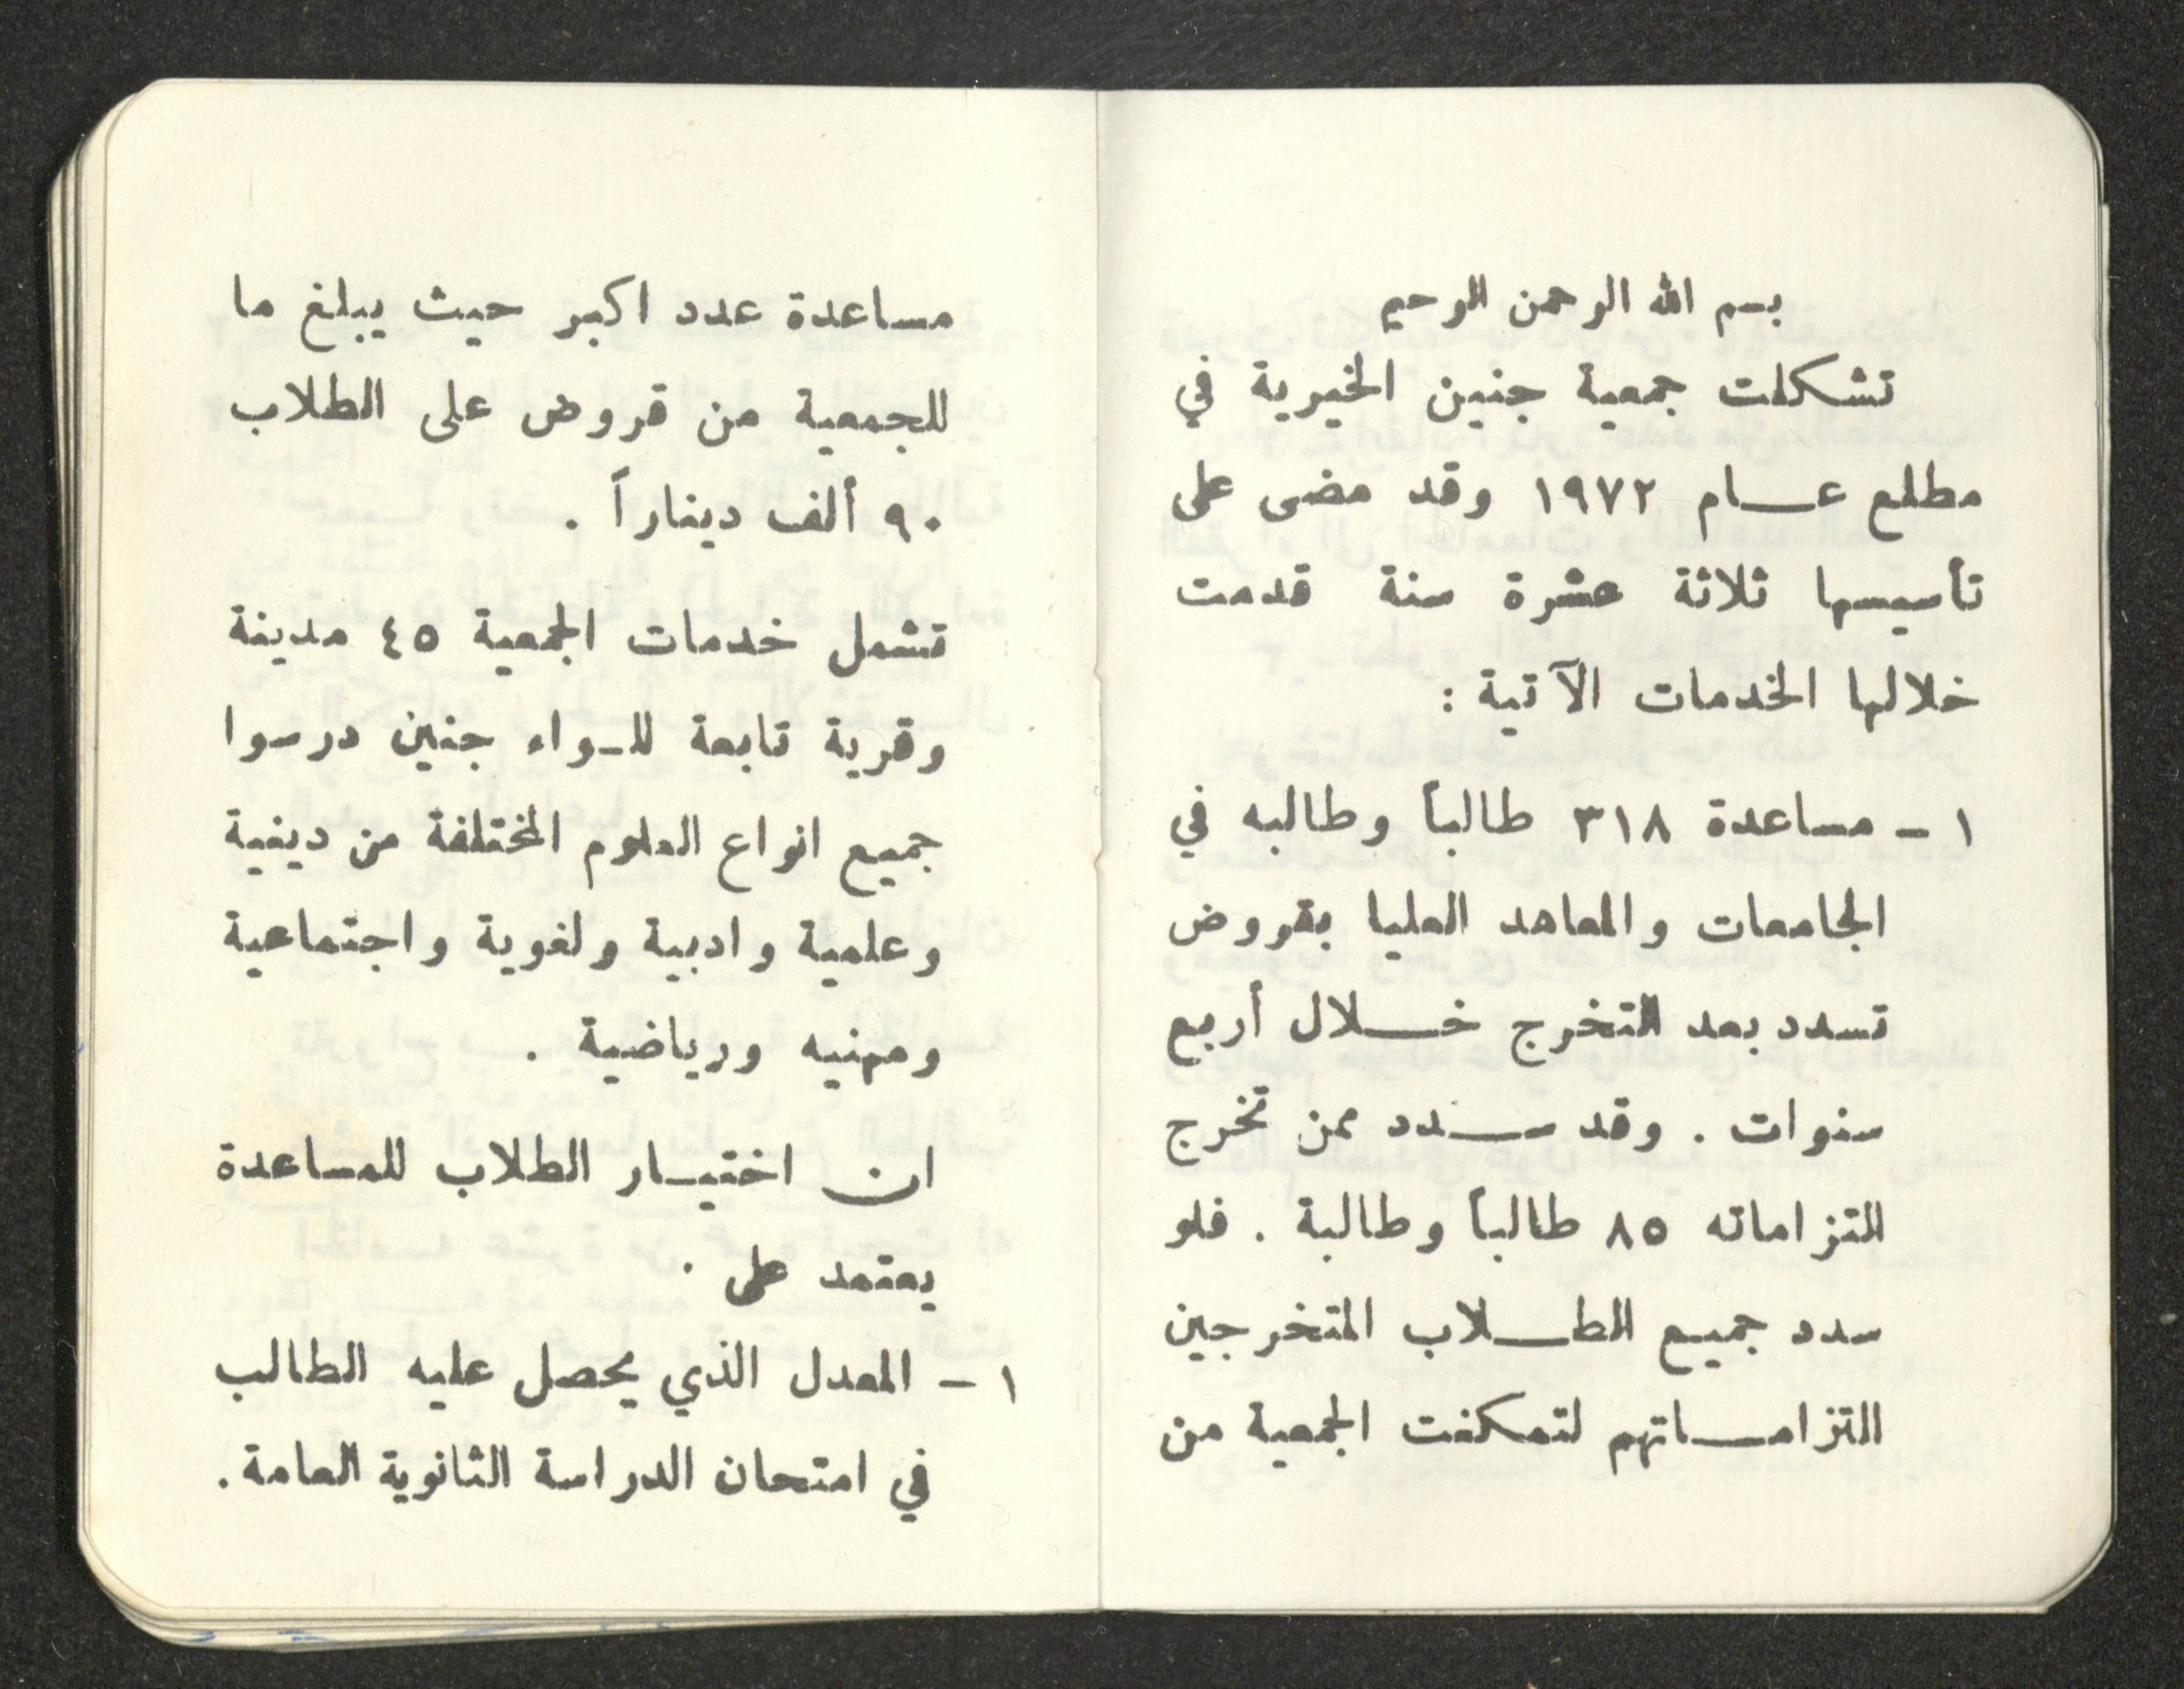 بسم الله الرحمن الرحيم
تشكلت جمعية جنين الخيرية في
مطلع عام ١٩٧٢ وقد مضى على
تأسيسها ثلاثة عشرة سنة قدمت
خلالها الخدمات الآتية :
١ - مساعدة ٣١٨ طالباً وطالبه في
الجامعات والمعاهد العليا بقروض
تسدد بعد التخرج خلال أربع
سنوات . وقد سدد ممن تخرج
التزاماته ٨٥ طالباً وطالبة . فلو
سدد جميع الطلاب المتخرجين
التزاماتهم لتمكنت الجمعية من
مساعدة عدد اكبر حيث يبلغ ما
للجمعية من قروض على الطلاب
٩٠ ألف ديناراً .
تشمل خدمات الجمعية ٤٥ مدينة
وقرية تابعة للواء جنين درسوا
جميع انواع العلوم المختلفة من دينية
وعلمية وادبية ولغوية واجتماعية
ومهنيه ورياضية .
ان اختيار الطلاب للمساعدة
يعتمد على .
١ - المعدل الذي يحصل عليه الطالب
في امتحان الدراسة الثانوية العامة .